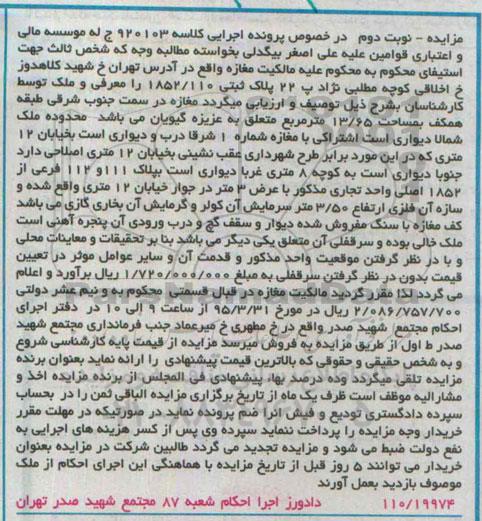 مزایده - نوبت دوم در خصوص پرونده اجرایی کلاسه ۹۲۰۱۰۳ ج له موسسه مالی
و اعتباری قوامین علیه علی اصغر بیگدلی بخواسته مطالبه وجه که شخص ثالث جهت
استیفای محکوم به محکوم علیه مالکیت مغازه واقع در آدرس تهران خ شهید کلاهدوز
خ اخلاقی کوچه مطلبی نژاد پ ۲۲ پلاک ثبتی ۱۸۵۲/۱۱۰ را معرفی و ملک توسط
کارشناسان بشرح ذیل توصیف و ارزیابی میگردد مغازه در سمت جنوب شرقی طبقه
همکف بمساحت ۱۳/۶۵ مترمربع متعلق به عزیزه گیویان می باشد محدوده ملک
شمالا دیواری است اشتراکی با مغازه شماره ۱ شرقا درب و دیواری است بخیابان ۱۲
متری که در این مورد برابر طرح شهرداری عقب نشینی بخیابان ۱۲ متری اصلاحی دارد
جنوبا دیواری است به کوچه ۸ متری غربا دیواری است بپلاک ۱۱۱و ۱۱۲ فرعی از
۱۸۵۲ اصلی واحد تجاری مذکور با عرض ۳ متر در جوار خیابان ۱۲ متری واقع شده و
سازه آن فلزی ارتفاع ۳/۵۰ متر سرمایش آن کولر و گرمایش آن بخاری گازی می باشد
کف مغازه با سنگ مفروش شده دیوار و سقف گچ و درب ورودی آن پنجره آهنی است
ملک خالی بوده و سرقفلی آن متعلق یکی دیگر می باشد بنا بر تحقیقات و معاینات محلی
و با در نظر گرفتن موقعیت واحد مذکور و قدمت آن و سایر عوامل موثر در تعیین
قیمت بدون در نظر گرفتن سرقفلی به مبلغ ۱/۷۲۰/۰۰۰/۰۰۰ ریال برآورد و اعلام
می گردد لذا مقرر گردید مالکیت مغازه در قبال قسمتی محکوم به و نیم عشر دولتی
۲/۰۸۶/۷۵۷/۷۰۰ ریال در مورخ ۹۵/۳/۳۱ از ساعت ۹ الی ۱۰ در دفتر اجرای
احکام مجتمع شهید صدر واقع در خ مطهری خ میرعماد جنب فرمانداری مجتمع شهید
صدر ط اول از طریق مزایده به فروش میرسد مزایده از قیمت پایه کارشناسی شروع
و به شخص حقیقی و حقوقی که بالاترین قیمت پیشنهادی را ارائه نماید بعنوان برنده
مزایده تلقی میگردد وده درصد بهاء پیشنهادی فی المجلس از برنده مزایده اخذ و
مشارالیه موظف است ظرف یک ماه از تاریخ برگزاری مزایده الباقی ثمن را در بحساب
سپرده دادگستری تودیع و فیش آنرا ضم پرونده نماید در صورتیکه در مهلت مقرر
خریدار وجه مزایده را پرداخت ننماید سپرده وی پس از کسر هزینه های اجرایی به
نفع دولت ضبط می شود و مزایده تجدید می گردد طالبین شرکت در مزایده بعنوان
خریدار می توانند ۵ روز قبل از تاریخ مزایده با هماهنگی این اجرای احکام از ملک
موصوف بازدید بعمل آورند
۱۱۰/۱۹۹۷۴ دادورز اجرا احکام شعبه ۸۷ مجتمع شهید صدر تهران